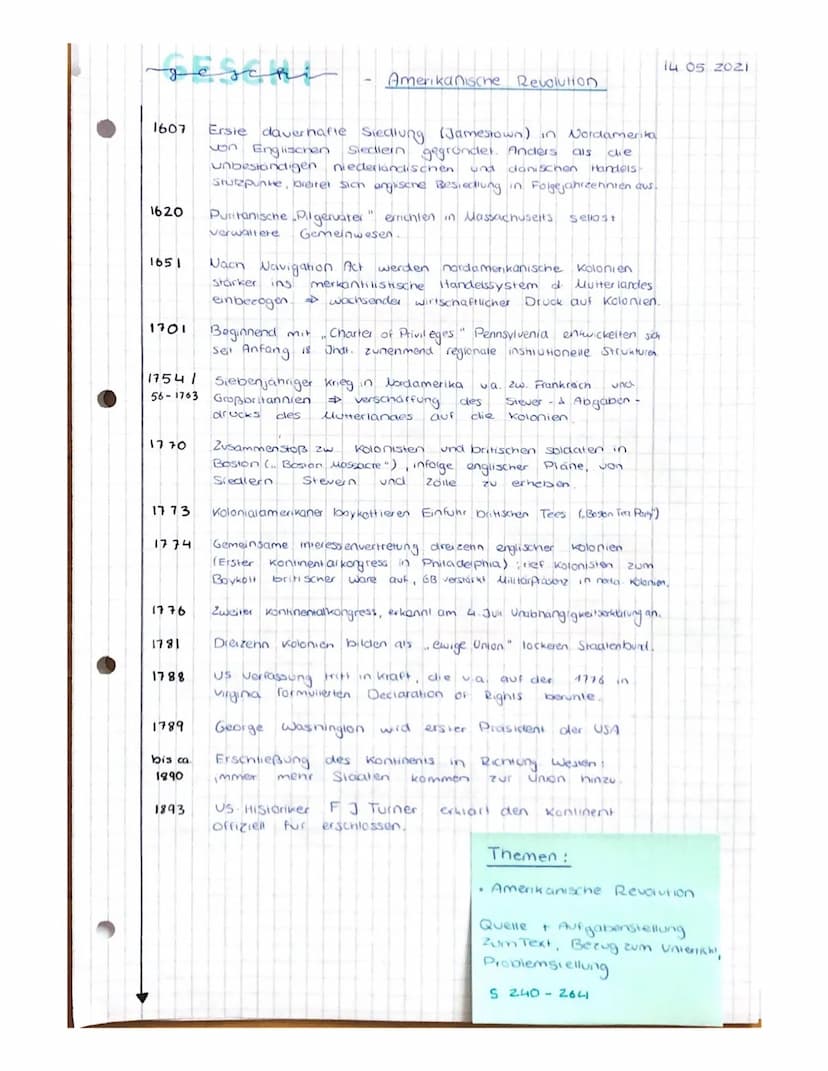 GESCHI
geschi - Amerikanische Revolution
14 05 2021
1607 Erste dauerhafte Siedlung (Jamestown) in Nordamerika
von Englischen Siedlern gegründet. Anders als die
unbeständigen niederländischen und dänischen Handels-
stützpunkte, breitet sich englische Besiedlung in Folgejahrzehnten aus.
1620 Puritanische „Pilgerväter" errichten in Massachusetts selbst
verwaltete Gemeinwesen.
1651 Nach Navigation Act werden nordamerikanische Kolonien
stärker ins merkantilistische Handelssystem d. Mutterlandes
einbezogen. ⇒ wachsender wirtschaftlicher Druck auf Kolonien.
1701 Beginnend mit „Charter of Privileges" Pennsylvenia entwickelten sich
seit Anfang 18 Jhdt. zunehmend regionale institutionelle Strukturen
1754 / Siebenjähriger Krieg in Nordamerika v.a. zw. Frankreich und
56-1763 Großbritannien ⇒ verschärfung des Steuer- & Abgaben-
drucks des Mutterlandes auf die Kolonien
1770 Zusammenstoß zw. Kolonisten und britischen Soldaten in
Boston („Boston Massacre"), infolge englischer Pläne, von
Siedlern Steuern und Zölle zu erheben.
1773 Kolonialamerikaner boykottieren Einfuhr britischen Tees („Boston Tea Party")
1774 Gemeinsame Interessenvertretung dreizehn englischer Kolonien
(Erster Kontinentalkongress in Philadelphia) rief Kolonisten zum
Boykott britischer Ware auf, GB verstärkt Militärpräsenz in norda. Kolonien.
1776 Zweiter Kontinentalkongress, erkannt am 4. Juli Unabhängigkeitserklärung an.
1781 Dreizehn Kolonien bilden als „ewige Union" lockeren Staatenbund.
1788 US Verfassung tritt in Kraft, die v.a. auf der 1776 in
Virgina formulierten Declaration of Rights beruhte.
1789 George Washington wird erster Präsident der USA
bis ca. Erschließung des Kontinents in Richtung Westen;
1890 immer mehr Staaten kommen zur Union hinzu.
1893 US-Historiker F J Turner erklärt den Kontinent
offiziell für erschlossen.
Themen:
• Amerikanische Revolution
Quelle + Aufgabenstellung
zum Text, Bezug zum Unterricht,
Problemstellung
S 240 - 264